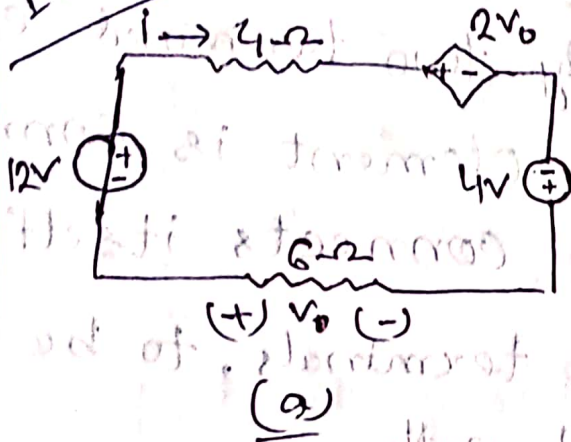 i → 4Ω 2V₀
+ -
12V + - 4V - +
6Ω
(+) V₀ (-)
(a)